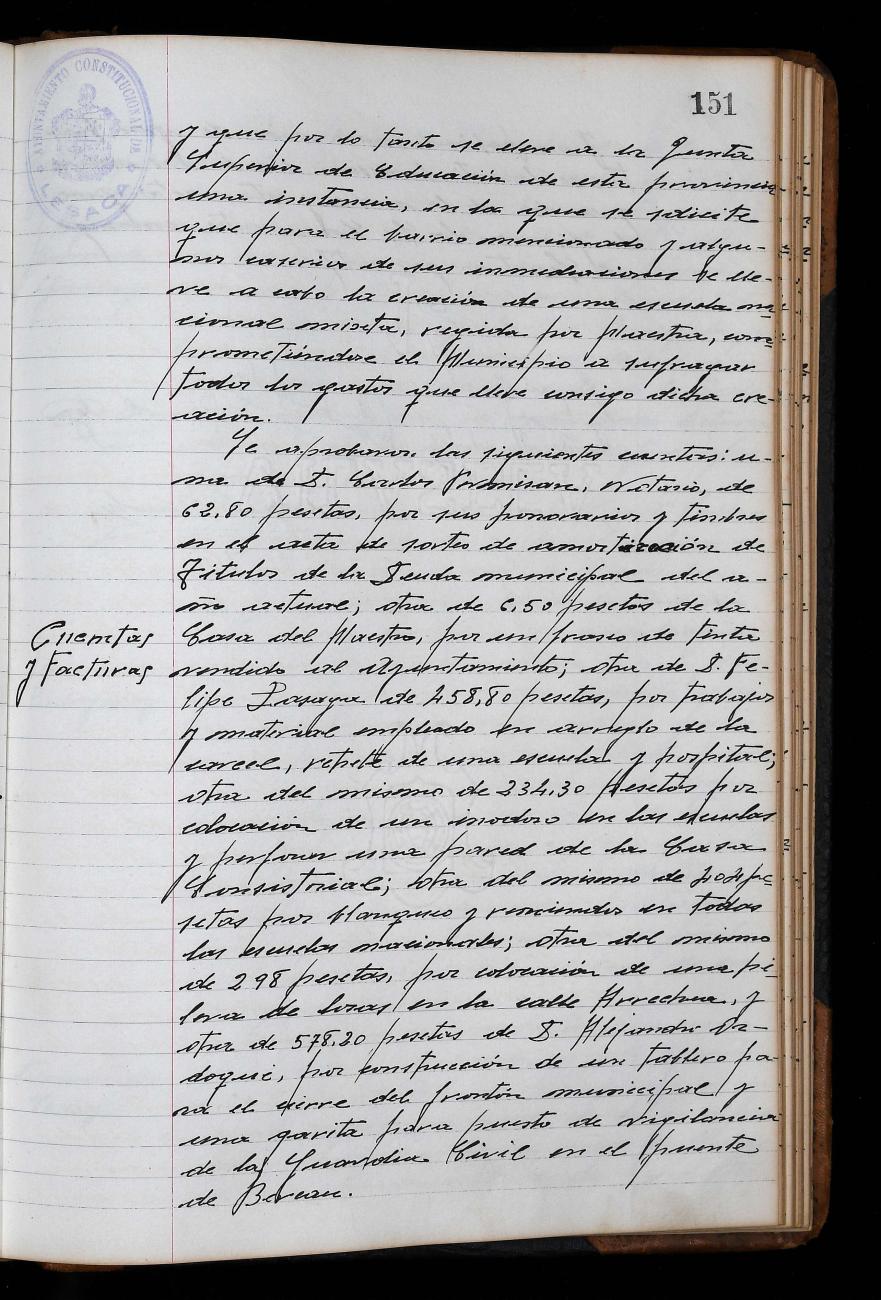 AYUNTAMIENTO CONSTITUCIONAL DE
LESACA
151
y que por lo tanto se eleve a la Junta
Superior de Educación de esta provincia
una instancia, en la que se solicite
que para el barrio mencionado y algu-
nos caserios de sus inmediaciones se lle-
ve a cabo la creación de una escuela na-
cional mixta, regida por Maestra, com-
prometiéndose el Municipio a sufragar
todos los gastos que lleve consigo dicha cre-
ación.
Se aprobaron las siguientes cuentas: u-
na de D. Carlos Notario, de
62,80 pesetas, por sus honorarios y timbres
en el acta de sorteo de amortización de
Titulos de la Deuda municipal del a-
ño actual; otra de 6,50 pesetas de la
Cuentas
y Facturas
Casa del Maestro, por un frasco de tinta
vendido al Ayuntamiento; otra de D. Fe-
lipe de 458,80 pesetas, por trabajos
y material empleado en arreglo de la
carcel, retrete de una escuela y hospital;
otra del mismo de 234,30 pesetas por
colocación de un inodoro en las escuelas
y perforar una pared de la Casa
Consistorial; otra del mismo de pe-
setas por blanqueo y en todas
las escuelas nacionales; otra del mismo
de 298 pesetas, por colocación de una hi-
lera de losas en la calle Arrechea, y
otra de 578,20 pesetas de D. Alejandro
por construcción de un tablero pa-
ra el cierre del frontón municipal y
una garita para puesto de vigilancia
de la Guardia Civil en el puente
de